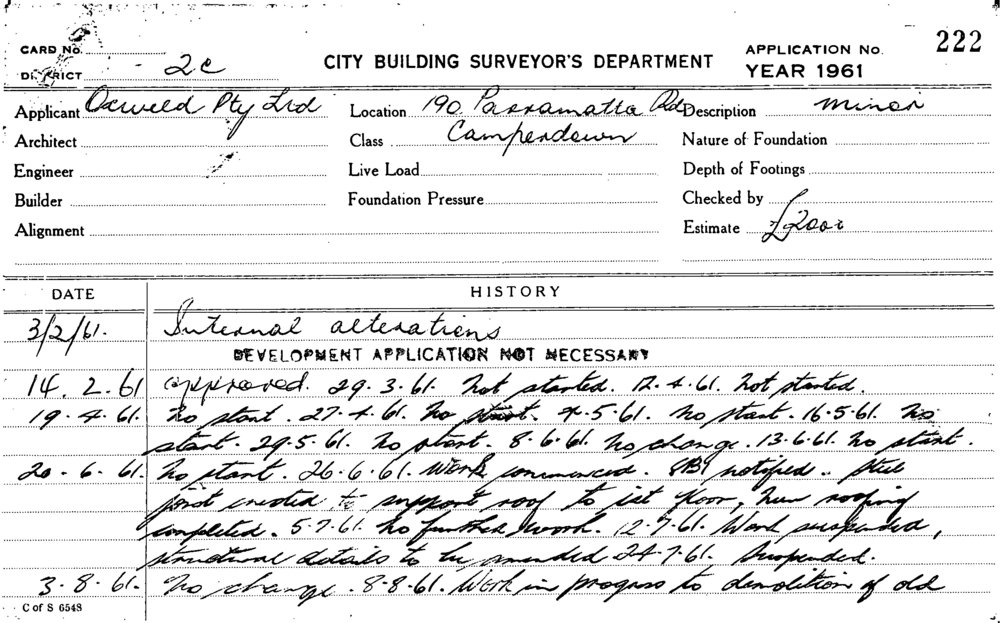 CARD No. 222
DISTRICT 2c CITY BUILDING SURVEYOR'S DEPARTMENT APPLICATION No.
YEAR 1961
Applicant Oxweld Pty Ltd Location 190 Parramatta Rd Description minor
Architect Class Camperdown Nature of Foundation
Engineer Live Load Depth of Footings
Builder Foundation Pressure Checked by
Alignment Estimate £200
DATE HISTORY
3/2/61. Internal alterations
DEVELOPMENT APPLICATION NOT NECESSARY
14. 2. 61 approved. 29. 3. 61. not started. 12. 4. 61. not started.
19. 4. 61. no start. 27. 4. 61. no start. 4. 5. 61. no start. 16. 5. 61. no
start. 29. 5. 61. no start. 8. 6. 61. no change. 13. 6. 61. no start.
20. 6. 61. no start. 26. 6. 61. Work commenced. notified. steel
joist erected to support roof to 1st floor, new roofing
completed. 5. 7. 61. no further work. 12. 7. 61. Work suspended,
structural details to be amended 24. 7. 61. Suspended.
3. 8. 61. no change. 8. 8. 61. Work in progress to demolition of old
C of S 6548